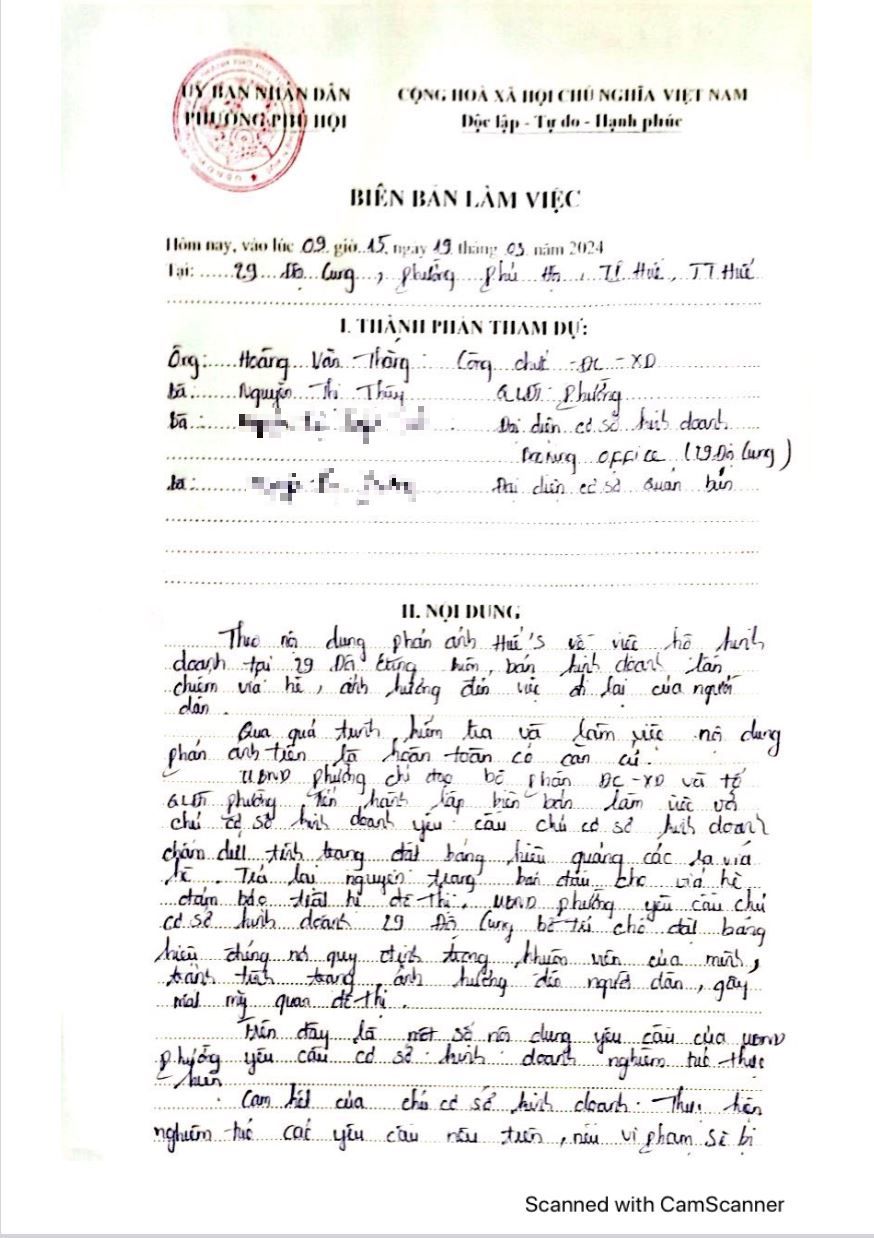 UỶ BAN NHÂN DÂN
PHƯỜNG PHÚ HỘI
CỘNG HOÀ XÃ HỘI CHỦ NGHĨA VIỆT NAM
Độc lập - Tự do - Hạnh phúc
BIÊN BẢN LÀM VIỆC
Hôm nay, vào lúc 09 giờ 15, ngày 19 tháng 03 năm 2024
Tại: 29 Đỗ Cung, phường Phú Hội, TP Huế, TT Huế
I. THÀNH PHẦN THAM DỰ:
Ông: Hoàng Văn Thắng : Công chức - ĐC - XD
Bà: Nguyễn Thị Thủy QLĐT phường
Bà: : Đại diện cơ sở kinh doanh
OFFICE (29 Đỗ Cung)
Bà: Đại diện cơ sở quán bún
II. NỘI DUNG
Theo nội dung phản ánh Huế's về việc hộ kinh
doanh tại 29 Đỗ buôn bán kinh doanh lấn
chiếm vỉa hè, ảnh hưởng đến việc đi lại của người
dân.
Qua quá trình kiểm tra và làm việc nội dung
phản ánh trên là hoàn toàn có căn cứ.
UBND phường chỉ đạo bộ phận ĐC-XD và tổ
QLĐT phường tiến hành lập biên bản làm việc với
chủ cơ sở kinh doanh yêu cầu chủ cơ sở kinh doanh
chấm dứt tình trạng đặt bảng hiệu quảng cáo ra vỉa
hè. Trả lại nguyên trạng ban đầu cho vỉa hè
đảm bảo trật tự đô thị. UBND phường yêu cầu chủ
cơ sở kinh doanh 29 Đỗ Cung bố trí chỗ đặt bảng
hiệu đúng nơi quy định trong khuôn viên của mình,
tránh tình trạng ảnh hưởng đến người dân, gây
mất mỹ quan đô thị.
Trên đây là một số nội dung yêu cầu của UBND
phường yêu cầu cơ sở kinh doanh nghiêm túc thực
hiện
Cam kết của chủ cơ sở kinh doanh: Thực hiện
nghiêm túc các yêu cầu nêu trên, nếu vi phạm sẽ bị
Scanned with CamScanner